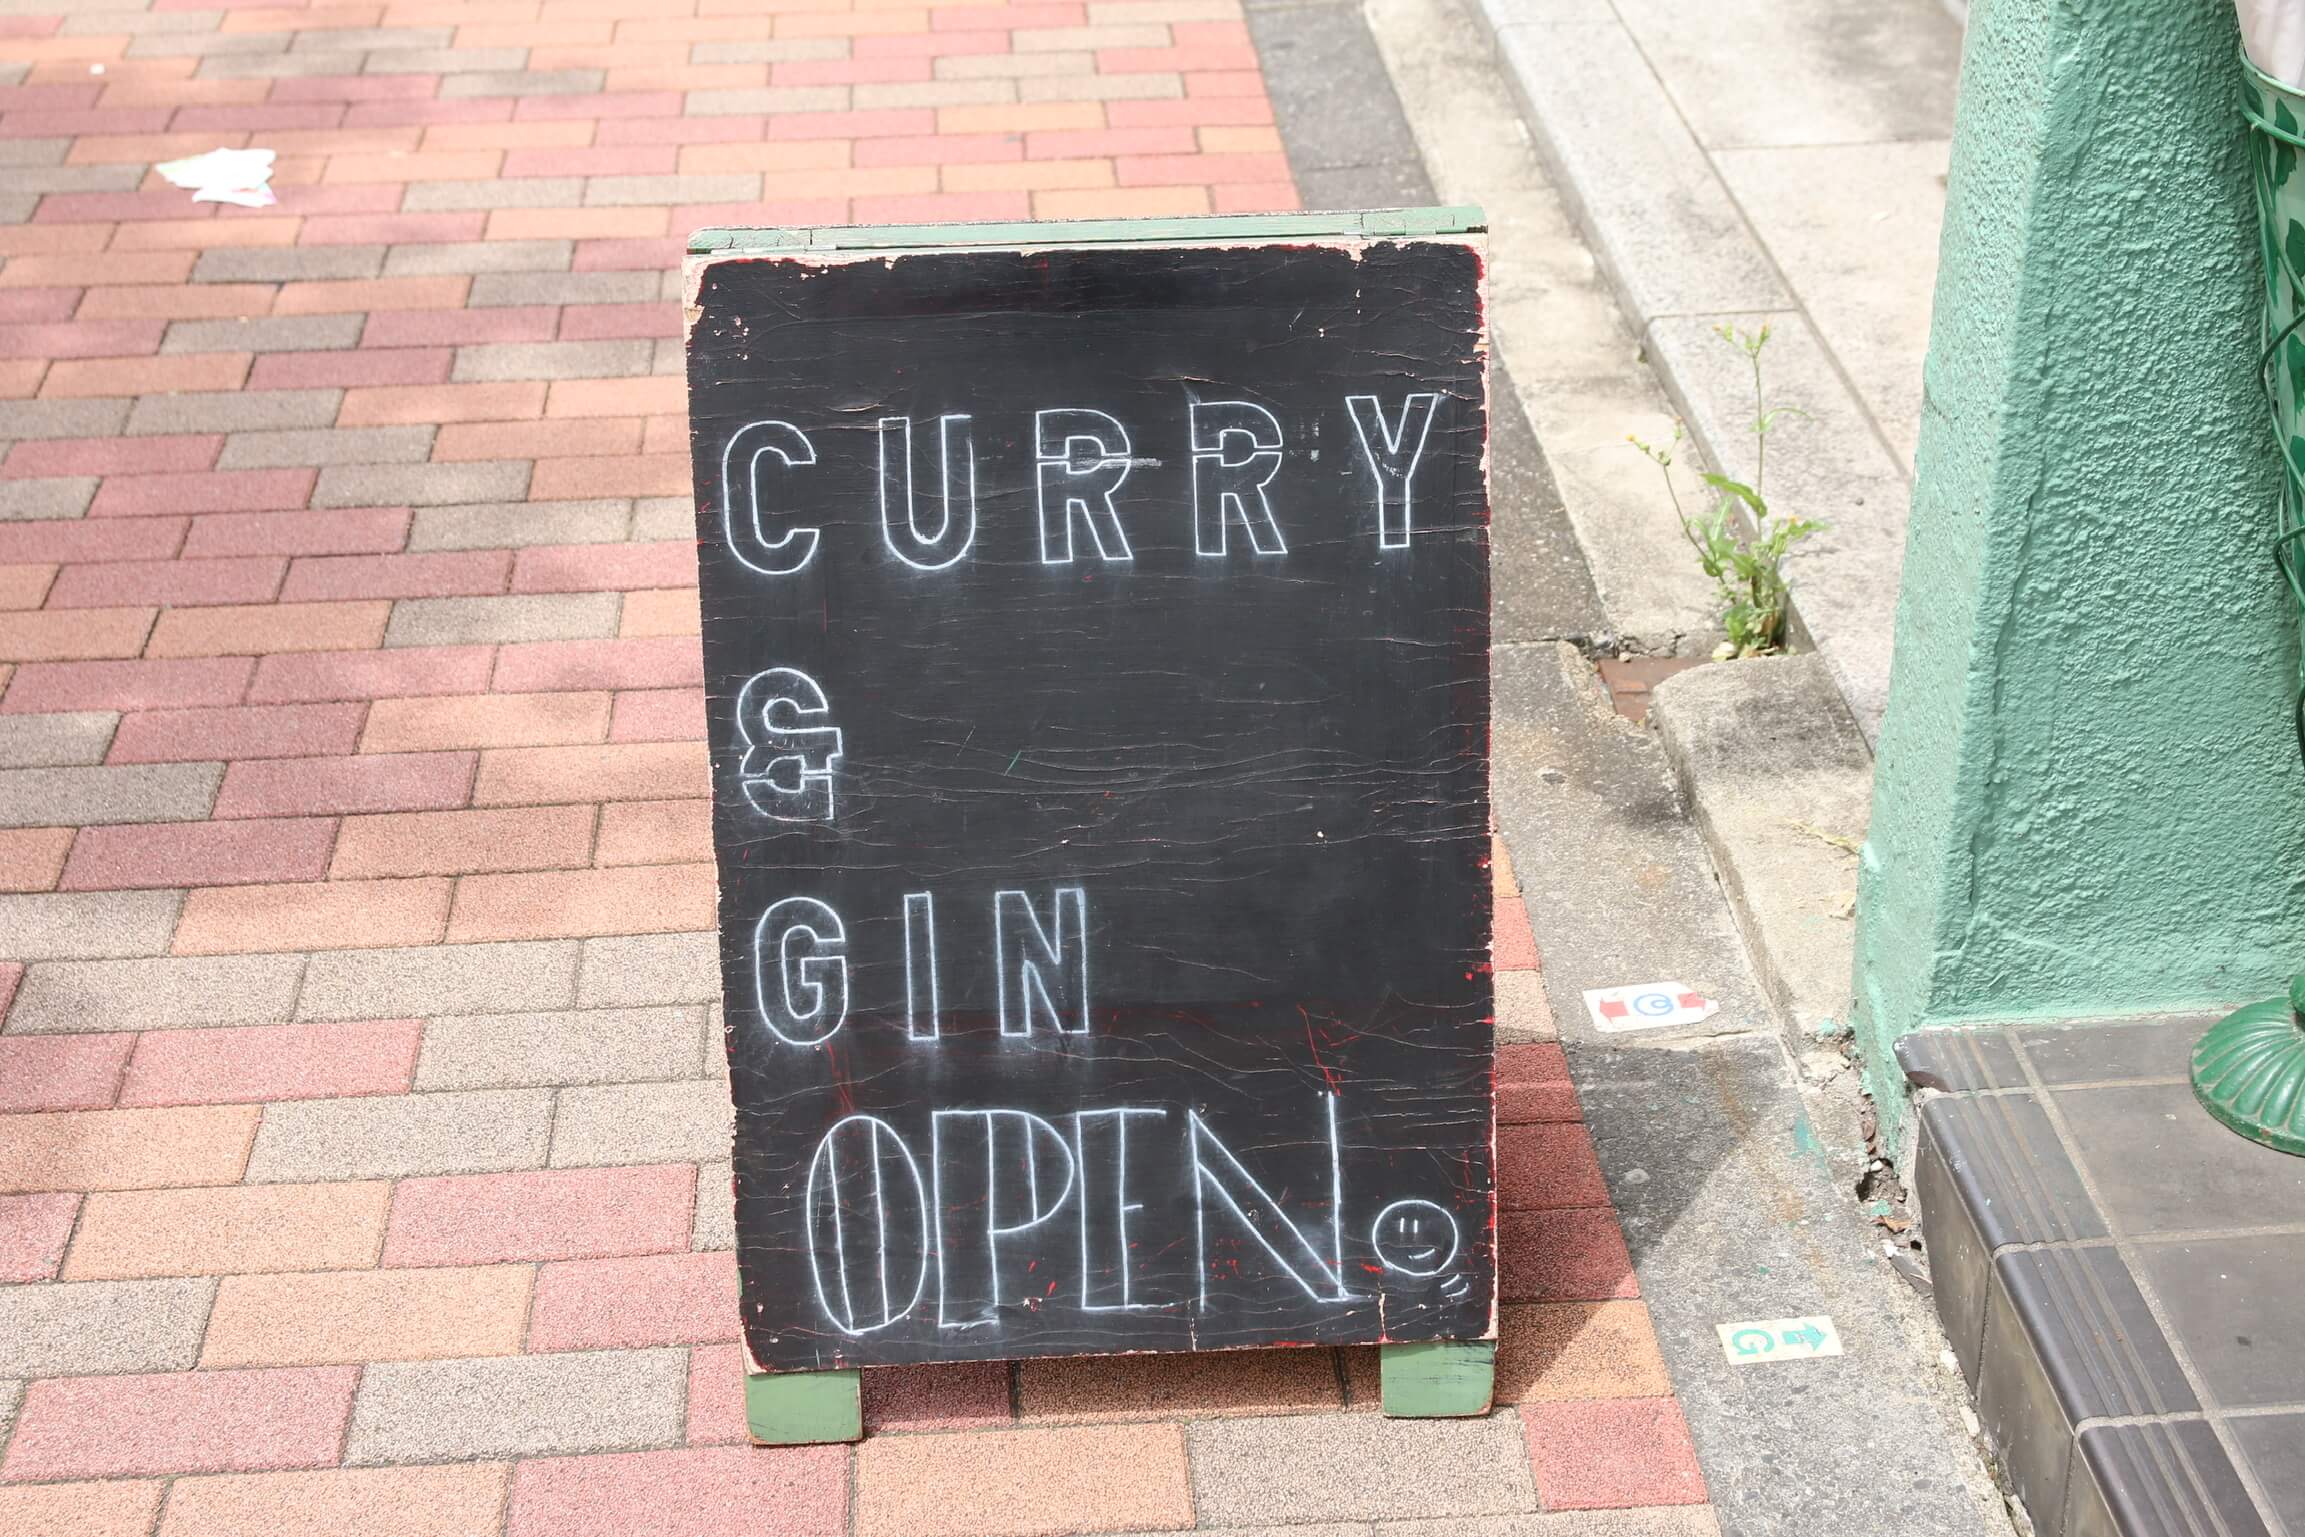 CURRY
&
GIN
OPEN
G